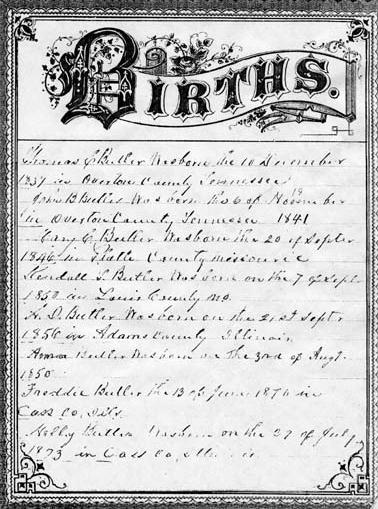 BIRTHS.
Thomas C Butler Was born the 10 December
1837 in Overton County Tennessee
John B Butler Was born the 6 of November
in Overton County Tennessee 1841
Butler Was born the 20 of Septer
1846 in Platte County missourie
Kendall S Butler Was born on the 7 of Sept
1850 in Louis County Mo.
H. D. Butler Was born on the 21st Septr
1856 in Adams County Illinois
Anna Butler Was born on the 3rd of Augt.
1850
Freddie Butler the 13 of June 1870 in
Cass Co, Ills
Molly Butler Was born on the 29 of July
1873 in Cass Co,